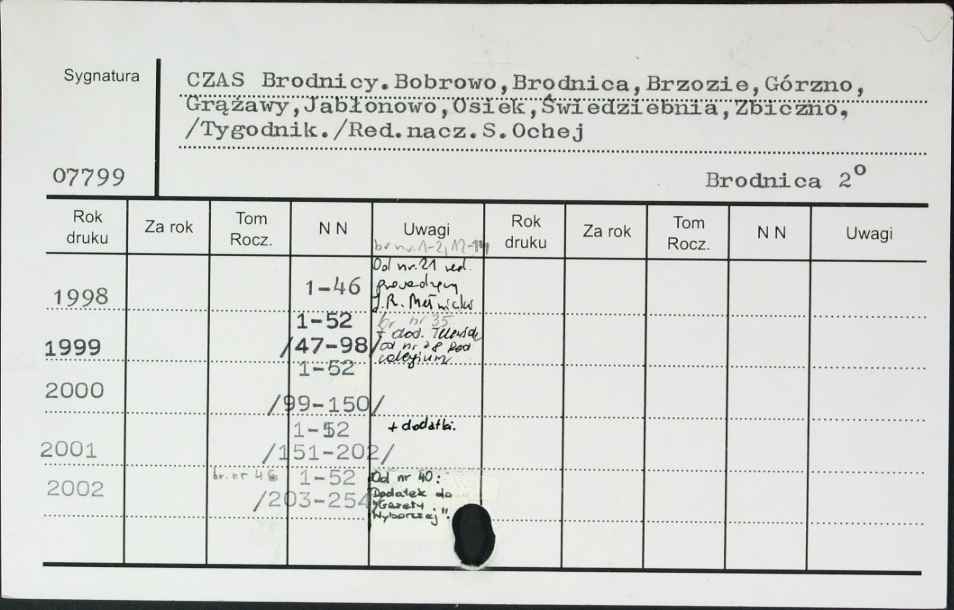 Sygnatura
CZAS Brodnicy.Bobrowo,Brodnica,Brzozie,Górzno,
Grążawy,Jabłonowo,Osiek,Świedziebnia,Zbiczno,
/Tygodnik./Red.nacz.S.Ochej
07799
Brodnica 2º
Rok druku Za rok Tom Rocz. N N Uwagi Rok druku Za rok Tom Rocz. N N Uwagi
br nr 1-2, 12-14
Od nr. 21 red.
1998 1-46 prowadzący
J.R.
1-52 br nr 35
+ dod.
1999 /47-98/ od nr 28 Red
1-52 colegium
2000
/99-150/
1-52 + dodatki.
2001 /151-202/
br. nr 48 1-52 Od nr 40:
2002 /203-254 Dodatek do
"Gazety
Wyborczej".